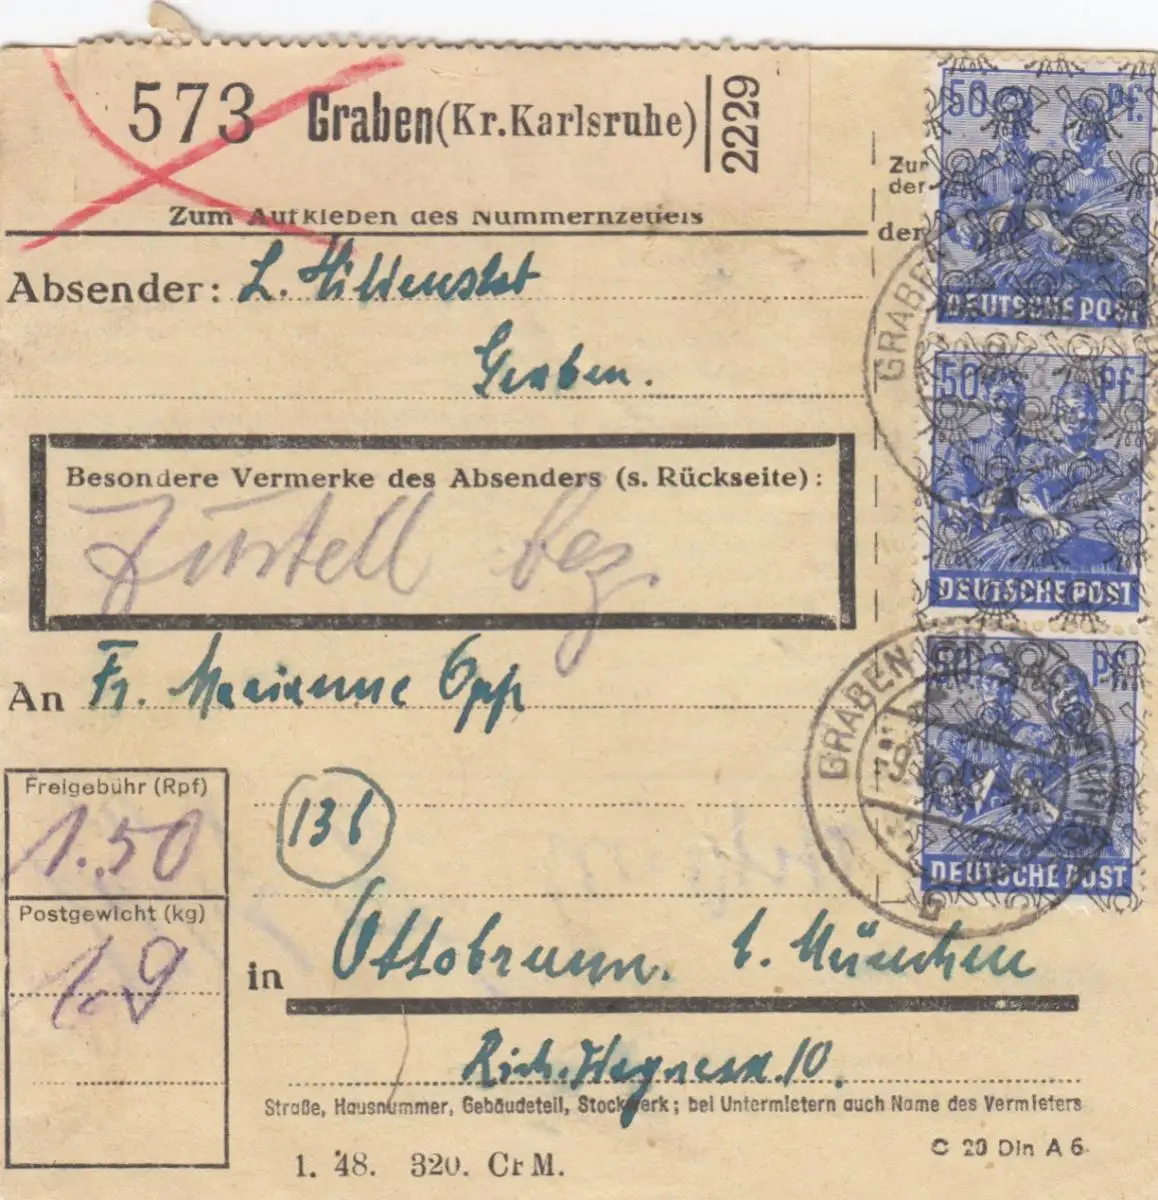 573 Graben (Kr. Karlsruhe) 2229
Zum Aufkleben des Nummernzettels
Zur
der
der
Absender: L.
Graben.
Besondere Vermerke des Absenders (s. Rückseite):
Zustell bez.
An Fr. Marianne Opp
Freigebühr (Rpf)
1.50
136
Postgewicht (kg)
1.9
in Ottobrunn. b. München
Rich. Wagnerstr. 10.
Straße, Hausnummer, Gebäudeteil, Stockwerk; bei Untermietern auch Name des Vermieters
1. 48. 320. CFM.
C 20 Din A 6
50 Pf.
DEUTSCHE POST
GRABEN
50 Pf.
DEUTSCHE POST
50 Pf.
DEUTSCHE POST
GRABEN